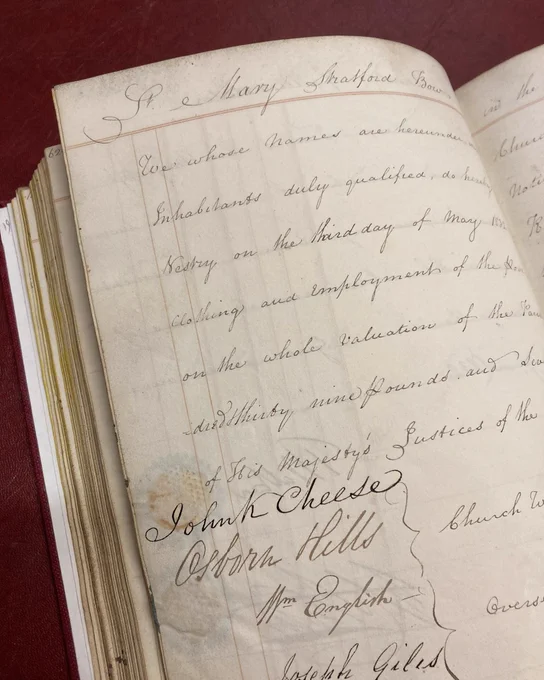 St. Mary Stratford Bow
We whose names are hereunder
Inhabitants duly qualified, do hereby
Vestry on the third day of May
Clothing and Employment of the Poor
on the whole Valuation of the
-dred & thirty nine Pounds and
of His Majesty's Justices of the
John K Cheese
Osborn Hills
Church W
Wm English
Overse
Joseph Giles
in the
Church
Noti